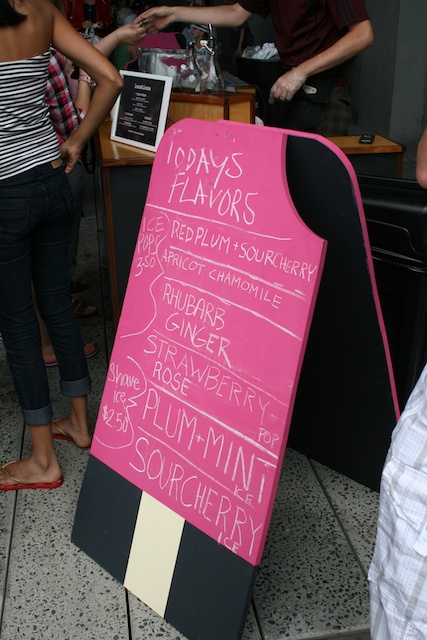 TODAYS
FLAVORS
ICE
POPS
3.50
RED PLUM + SOURCHERRY
APRICOT CHAMOMILE
RHUBARB
GINGER
STRAWBERRY
ROSE
POP
Shave
ice
$2.50
PLUM + MINT
ICE
SOURCHERRY
ICE